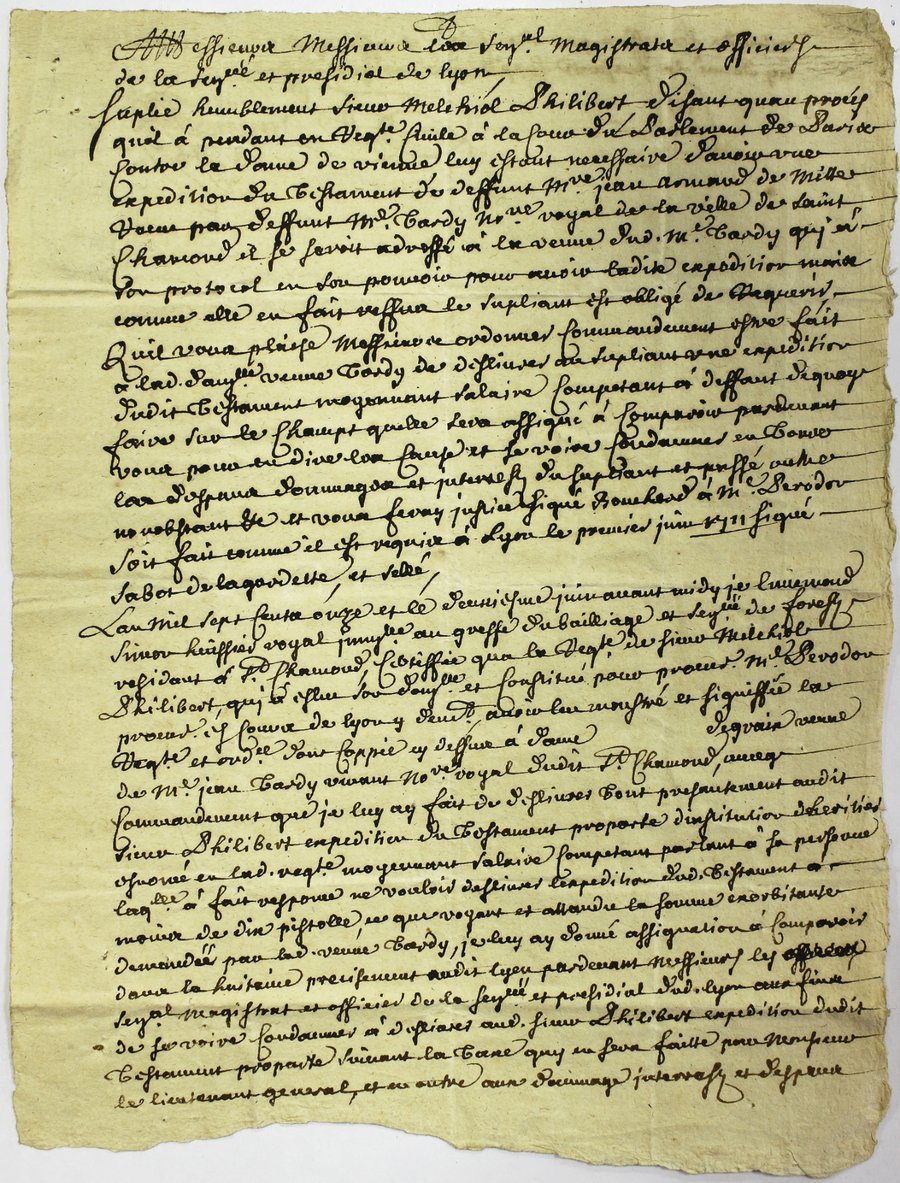 Messieurs Messieurs les Sen.al Magistrats et officiers
de la Sen.ée et presidial de lyon
Suplie humblement Sieur Melchiol Philibert disant quau procés
quil á pendant en Reqte Civile á la Cour du Parlement de Paris
Contre la dame de vienne luy estant necessaire davoir une
expedition du Testament de deffunt Mre jean armand de Mitte
Receu par deffunt Me. Tardy Nore royal de la ville de Saint
Chamond il se seroit adressé á la veuve dud. Me. Tardy qui á
son protocol en son pouvoir pour avoir ladite expedition mais
comme elle en fait reffus le supliant est obligé de Requerir
Quil vous plaise Messieurs ordonner Commandement estre fait
á lad. dam.lle veuve Tardy de deslivrer au supliant une expedition
dudit Testament moyennant salaire Competant á deffaut dequoy
faire sur le Champt quelle sera assigné á Comparoir pardevant
vous pour en dire les Cause et se voire Condamner en Tous
les despens dommages et interrests du supliant et passé outre
nonobstant &c et vous feres justice signé Bouchard á Me. Perodon
Soit fait comme il est requis á Lyon le premier juin 1711 signé
Sabot de lagardette, et sellé,
Lan Mil sept Cents onze et le deuxiesme juin avant midy je
Simon huissier royal au greffe du bailliage et Sen.ée de forests
residant á St. Chamond, Certiffie qua la Reqte. de sieur Melchiol
Philibert, qui á eslu son dom.lle et Constitué pour procur. Me. Perodon
procur. es Cours de lyon y dem.t, avoir leu monstré et signiffiée la
Reqte. et ord.ce dont Coppie cy dessus á dame degrain veuve
de Me. jean Tardy vivant Nore royal dudit St. Chamond, avec
Commandement que je luy ay fait de deslivrer Tout presentement audit
sieur Philibert expedition du Testament proparte dinstitution dheritier
enoncé en lad. reqte. moyennant salaire Competant parlant á sa personne
laqlle á fait response ne vouloir deslivrer lexpedition dud. Testament á
moins de dix pistolle, ce que voyant et attandu la somme exorbitante
demandée par lad. veuve Tardy, je luy ay donné assignation á Comparoir
dans la huitaine precisement audit lyon pardevant Messieurs les
Sen.al Magistrat et officier de la Sen.ée et presidial dud. lyon aux fins
de se voire Condamner á deslivrer aud. sieur Philibert expedition dudit
Testament proparte suivant la Taxe quy en sera faitte par Monsieur
le lieutenant general, et en outre aux dommage interrests et despens